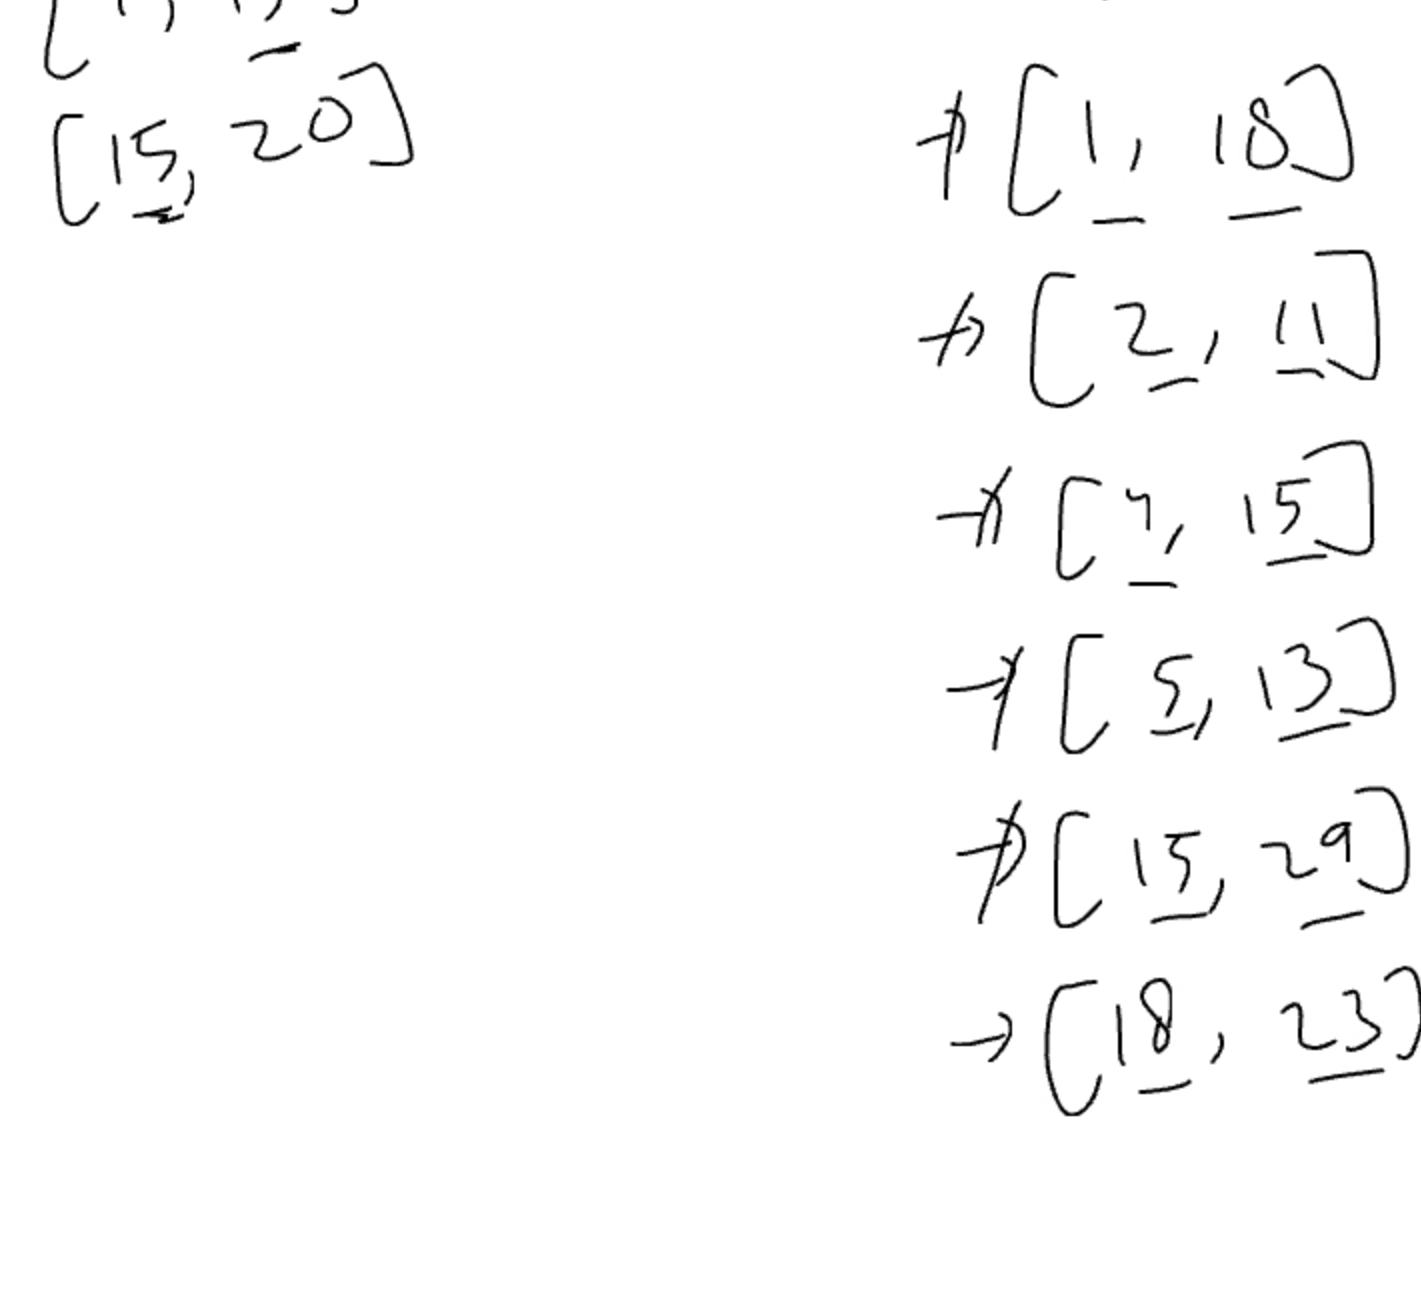 [15, 20]
→ [1, 18]
→ [2, 11]
→ [4, 15]
→ [5, 13]
→ [15, 29]
→ [18, 23]